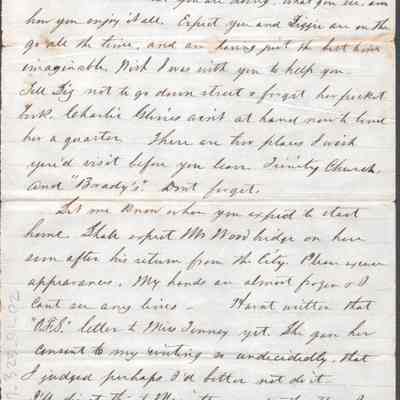 you are doing, what you see, and
how you enjoy it all. Expect you and Lizzie are on the
go all the time, and are having just the best time
imaginable. Wish I was with you to help you.
Tell Liz not to go down street & forget her pocket
book. Charlie Glines ain't at hand now to lend
her a quarter. There are two places I wish
you'd visit before you leave Trinity Church,
and "Brady's". Don't forget.
Let me know when you expect to start
home. Shall expect Mr Woodbridge on here
soon after his return from the City. Please excuse
appearances. My hands are almost frozen & I
cant see any lines — Havnt written that
"O.F.S." letter to Miss Tenney yet. She gave her
consent to my writing so undecidedly, that
I judged perhaps I'd better not do it.